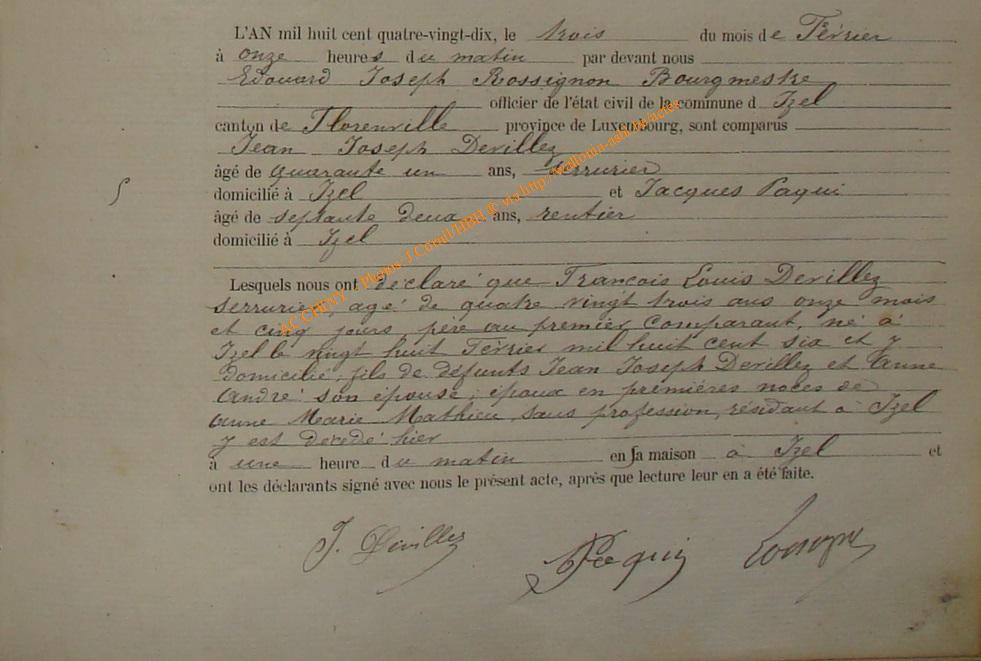 L'AN mil huit cent quatre-vingt-dix, le trois du mois de Février
à onze heures du matin par devant nous
Edouard Joseph Rossignon Bourgmestre
officier de l'état civil de la commune d Izel
canton de Florenville province de Luxembourg, sont comparus
Jean Joseph Devillez
âgé de quarante un ans, serrurier
domicilié à Izel et Jacques Paqui
âgé de septante deux ans, rentier
domicilié à Izel
Lesquels nous ont déclaré que François Louis Devillez
serrurier, agé de quatre vingt trois ans onze mois
et cinq jours, père au premier comparant, né à
Izel le vingt huit Février mil huit cent six et y
domicilié, fils de défunts Jean Joseph Devillez et Anne
André son épouse; époux en premières noces de
Anne Marie Mathieu, sans profession, résidant à Izel
y est décédé hier
à une heure du matin en sa maison à Izel et
ont les déclarants signé avec nous le présent acte, après que lecture leur en a été faite.
J. Devillez